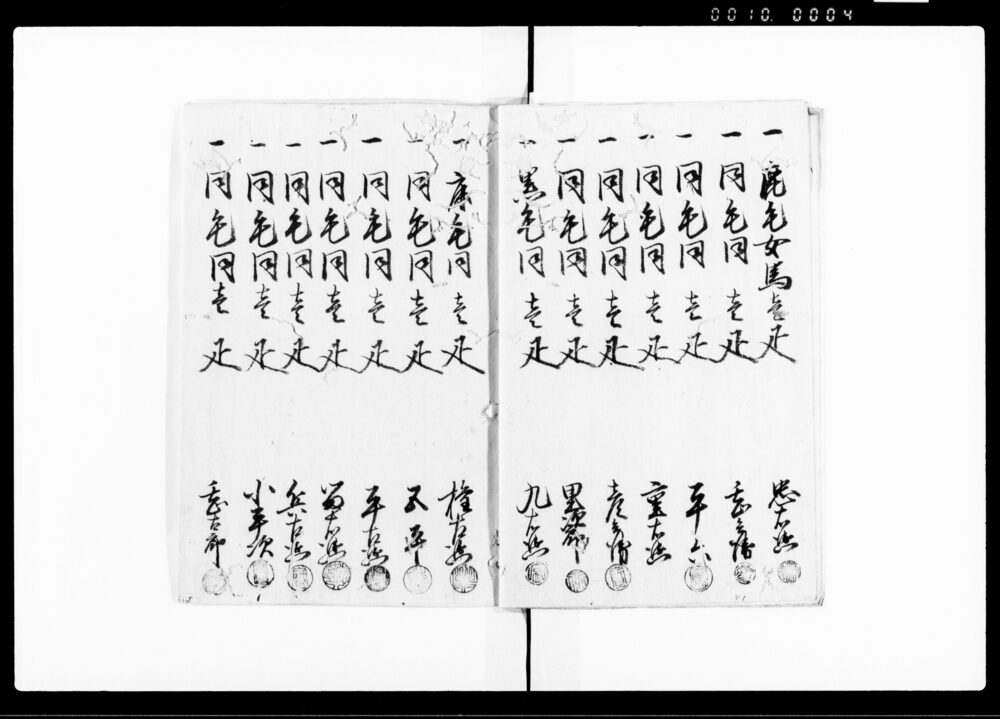 0010. 0004
一 鹿毛女馬壱疋 忠右衛門
一 同毛同壱疋
一 同毛同壱疋 平六
一 同毛同壱疋 重右衛門
一 同毛同壱疋 彦兵衛
一 同毛同壱疋
一 黒毛同壱疋 九右衛門
一 鹿毛同壱疋 権右衛門
一 同毛同壱疋 五平
一 同毛同壱疋 平右衛門
一 同毛同壱疋 右衛門
一 同毛同壱疋 兵右衛門
一 同毛同壱疋 小平次
一 同毛同壱疋 吉郎